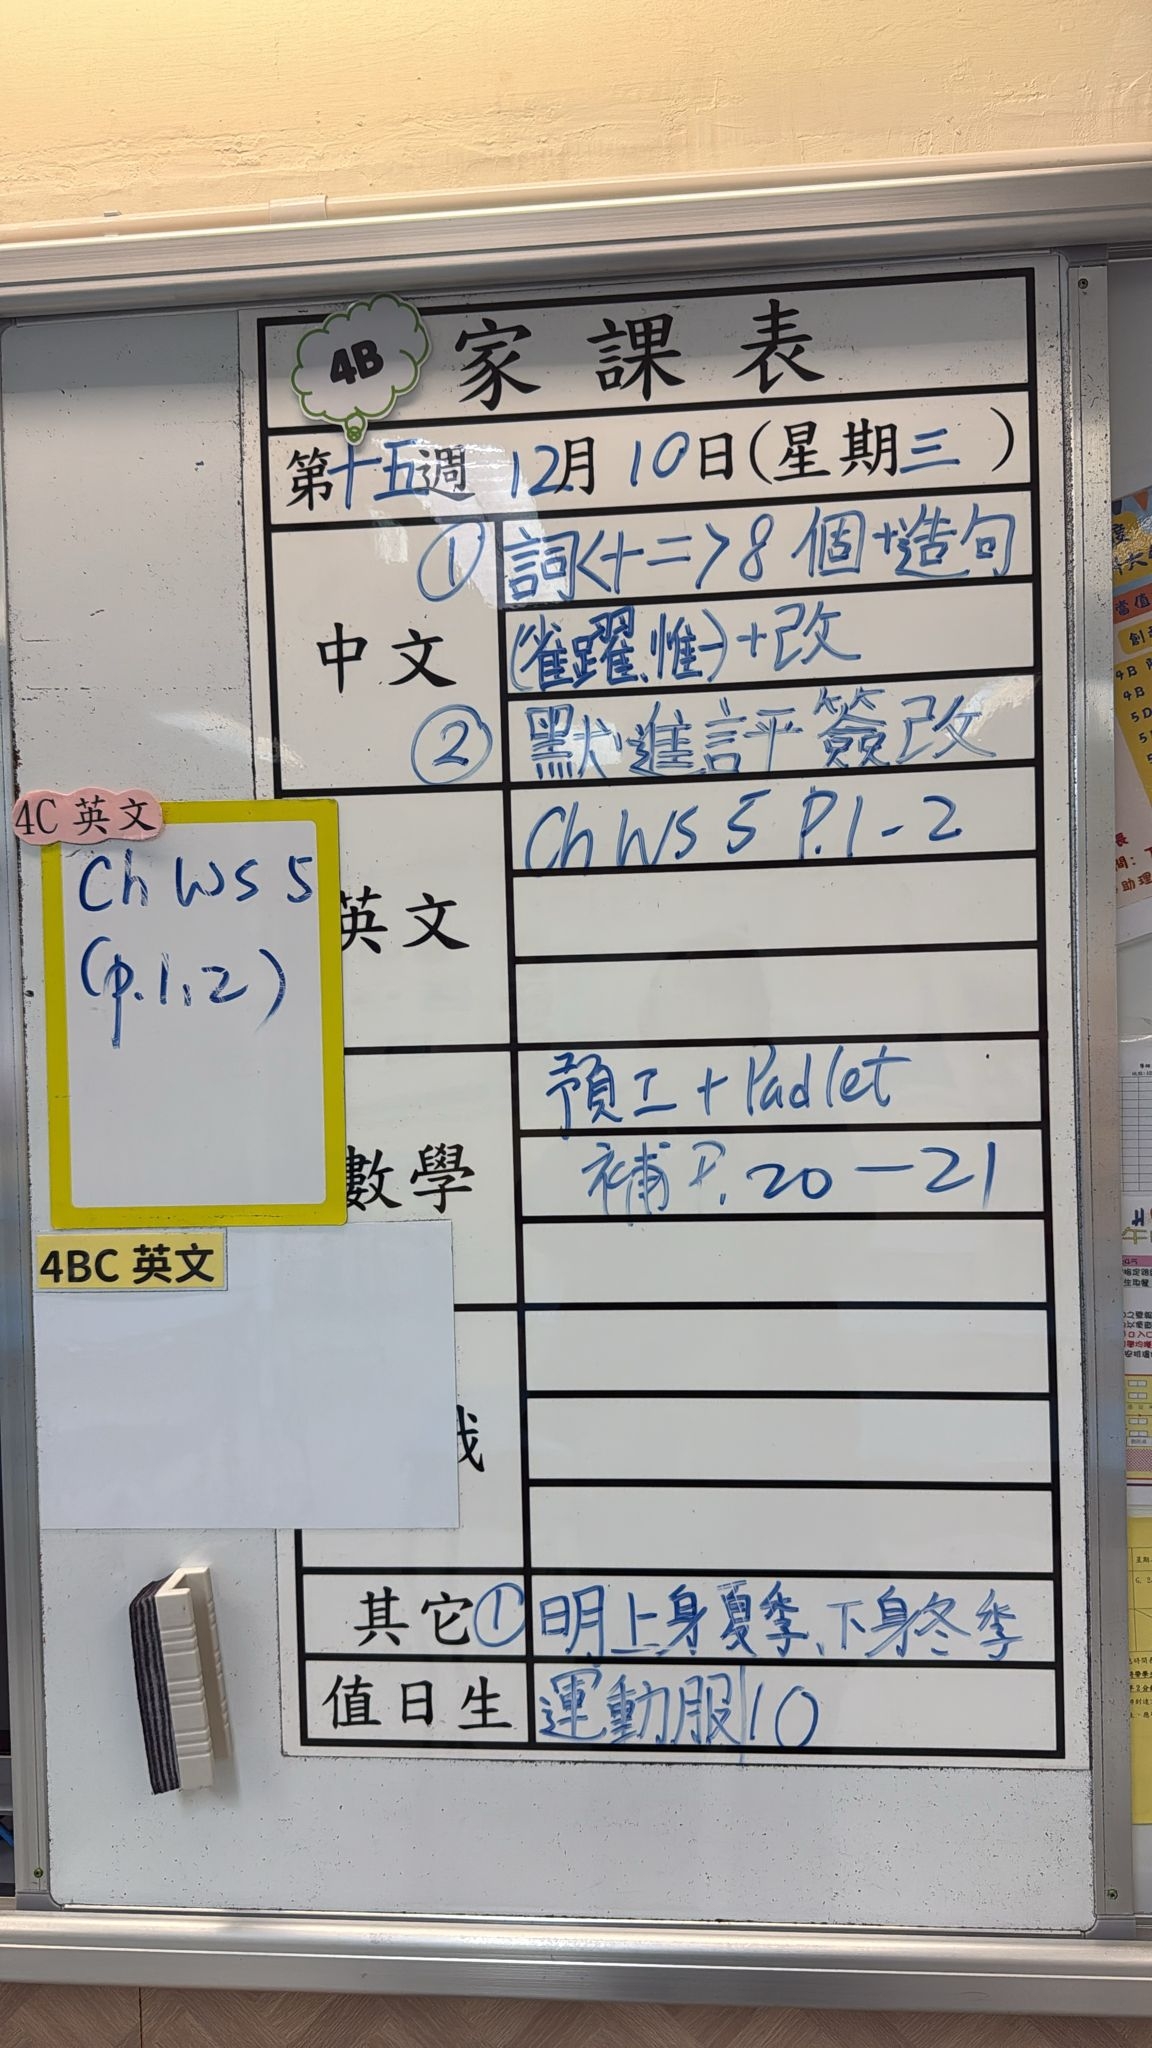 4B 家課表
第十五週 12月10日(星期三)
中文
① 詞<十二>8個+造句
(雀躍、惟一)+改
② 默進評簽改
英文
Ch WS 5 P.1-2
數學
預工+Padlet
補P.20-21
其它 ① 明上身夏季、下身冬季
值日生 運動服/10
4C 英文
Ch WS 5
(p.1,2)
4BC 英文